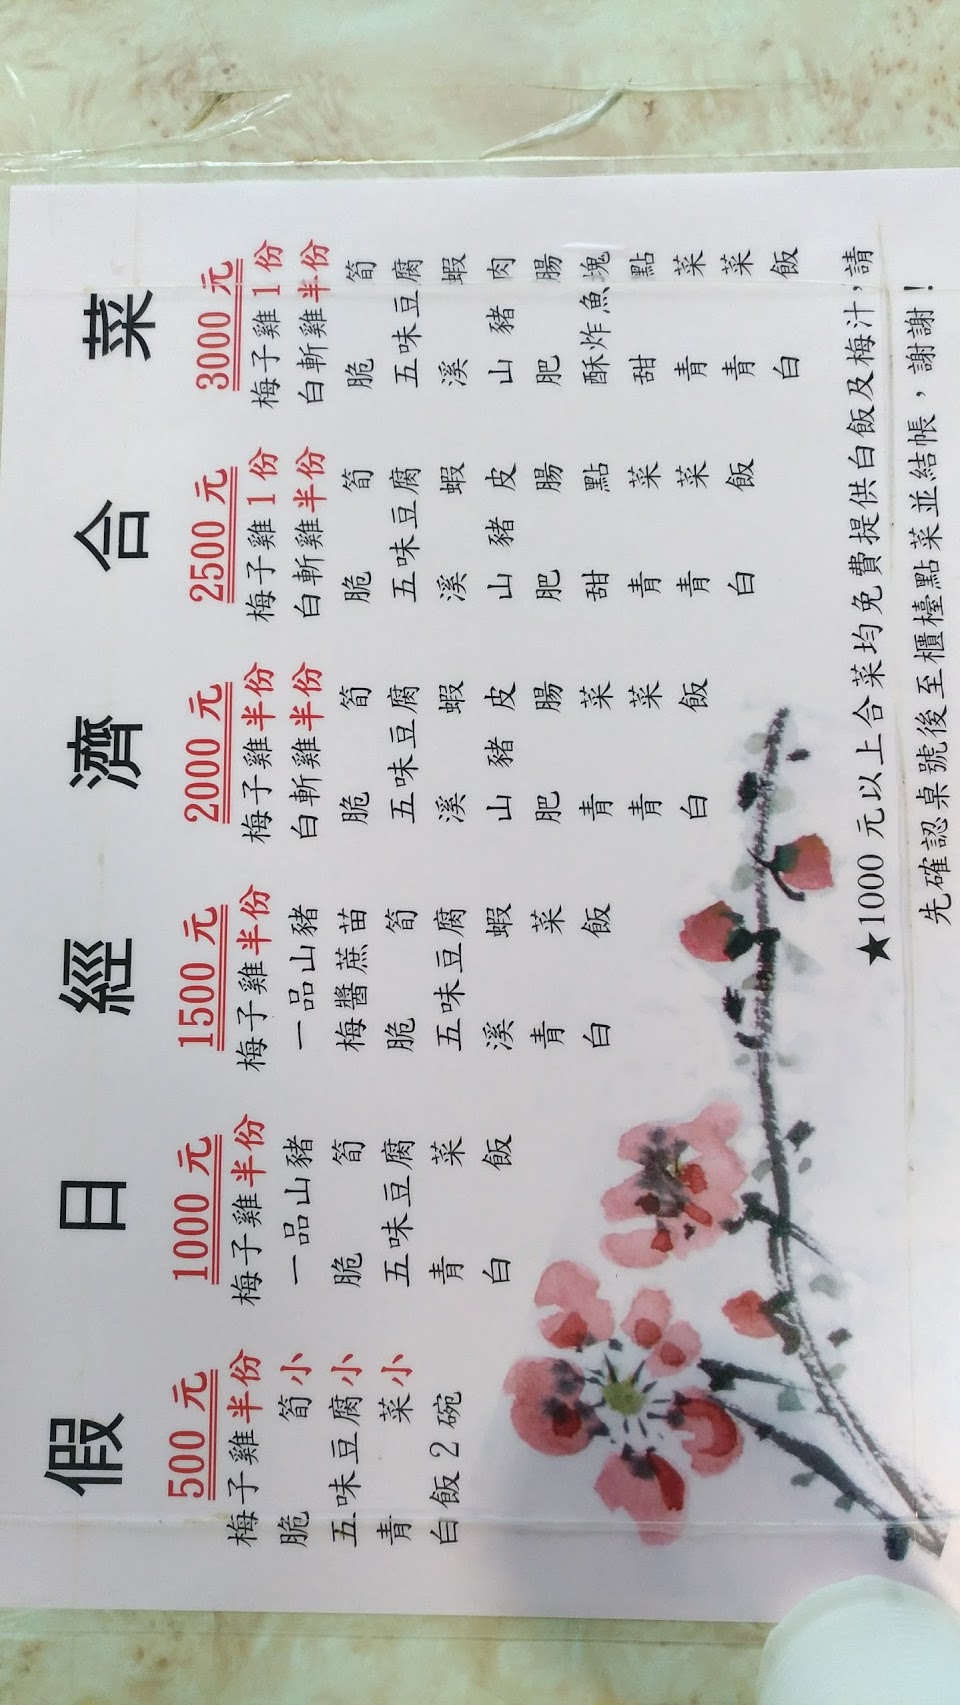 假日經濟合菜
500 元
梅子雞半份
脆筍小
五味豆腐小
青菜小
白飯2碗
1000 元
梅子雞半份
一品山豬
脆筍
五味豆腐
青菜
白飯
1500 元
梅子雞半份
一品山豬
梅醬蔗苗
脆筍
五味豆腐
溪蝦
青菜
白飯
2000 元
梅子雞半份
白斬雞半份
脆筍
五味豆腐
溪蝦
山豬皮
肥腸
青菜
青菜
白飯
2500 元
梅子雞1份
白斬雞半份
脆筍
五味豆腐
溪蝦
山豬皮
肥腸
甜點
青菜
青菜
白飯
3000 元
梅子雞1份
白斬雞半份
脆筍
五味豆腐
溪蝦
山豬肉
肥腸
酥炸魚塊
甜點
青菜
青菜
白飯
★1000 元以上合菜均免費提供白飯及梅汁,請
先確認桌號後至櫃檯點菜並結帳，謝謝！